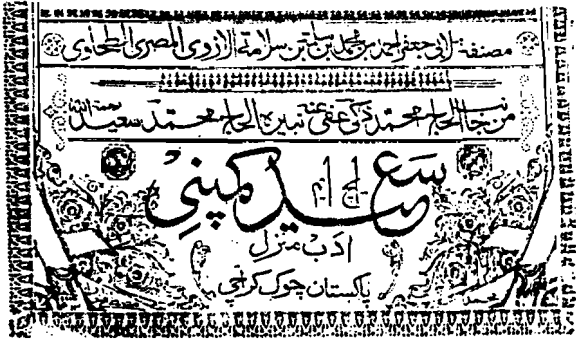 مصنفہ لابی جعفر احمد بن محمد بن سلامۃ الازدی المصری الطحاوی
من جانب الحاج محمد ذکی عفی عنہ نبیرہ الحاج محمد سعید رحمۃ اللہ
ایچ ایم سعید کمپنی
ادب منزل
پاکستان چوک کراچی